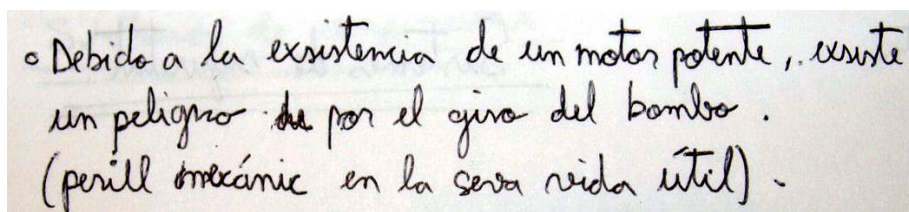 ∘ Debido a la exsistencia de un motor potente, exsiste
un peligro por el giro del bombo.
(perill mecánic en la seva vida útil).